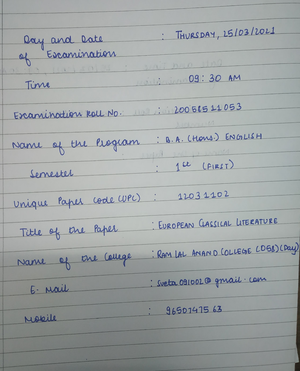 Day and Date : THURSDAY, 25/03/2021
of Examination
Time : 09:30 AM
Examination Roll No. : 20058511053
Name of the Program : B.A. (Hons.) ENGLISH
Semester : 1st (FIRST)
Unique Paper Code (UPC) : 12031102
Title of the Paper : EUROPEAN CLASSICAL LITERATURE
Name of the College : RAM LAL ANAND COLLEGE (058) (Day)
E-Mail : Sveta091002@gmail.com
Mobile : 9650747563